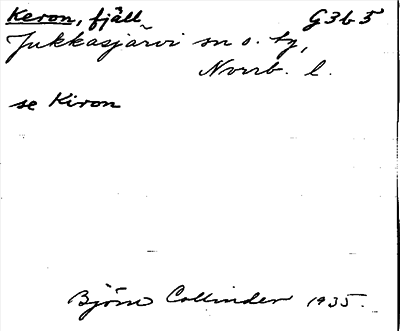 Keron, fjäll G3b5
Jukkasjärvi sn o. tg,
Norrb. l.
se Kiron
Björn Collinder 1935.